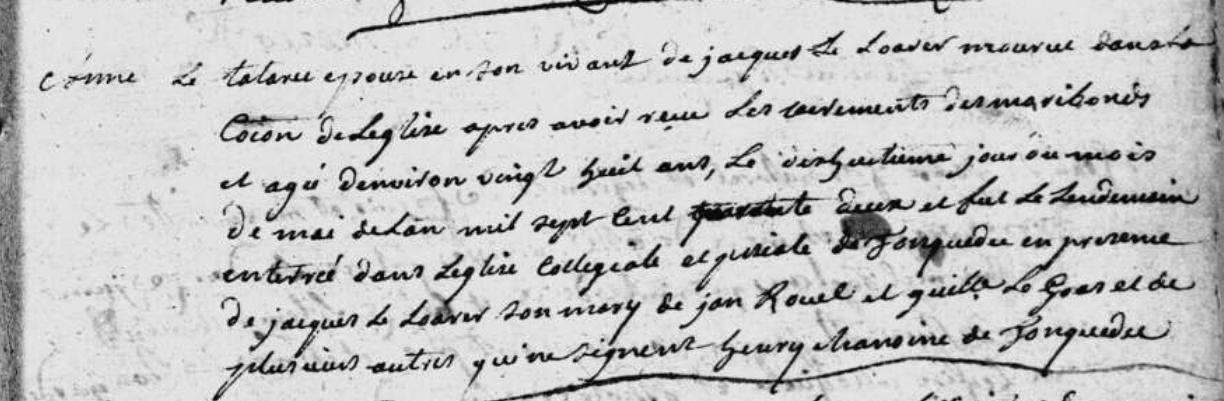 Anne Le talarec epouse en son vivant de jacques Le Loarer mourut dans la
Coion de Leglise apres avoir reçue Les sacrements des moribonds
et agée denviron vingt huit ans, Le dishuitieme jour du mois
de mai de Lan mil sept Cent quarante deux et fut Le Lendemain
enterrée dans Leglise Collegiale et de Tonquedec en presence
de jacques Le Loarer son mary de jan Rouel et guille Le Goas et de
plusieurs autres qui ne signent henry chanoine de Tonquedec